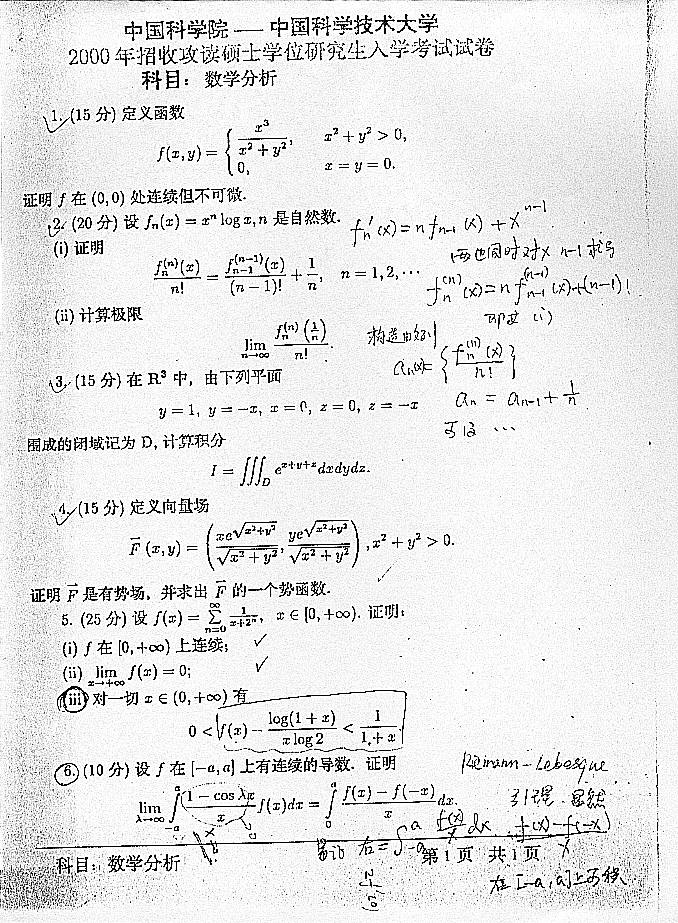 中国科学院 — 中国科学技术大学
2000 年招收攻读硕士学位研究生入学考试试卷
科目: 数学分析
1. (15 分) 定义函数
f(x,y) = { x³/(x²+y²), x²+y² > 0,
0, x = y = 0.
证明 f 在 (0,0) 处连续但不可微.
2. (20 分) 设 fₙ(x) = xⁿ log x, n 是自然数.
fₙ'(x) = n fₙ₋₁(x) + xⁿ⁻¹
(i) 证明
两边同时对x n-1 求导
fₙ⁽ⁿ⁾(x)/n! = fₙ₋₁⁽ⁿ⁻¹⁾(x)/(n-1)! + 1/n, n = 1,2,⋯
fₙ⁽ⁿ⁾(x) = n fₙ₋₁⁽ⁿ⁻¹⁾(x) + (n-1)!
即是 (i)
(ii) 计算极限
lim n→∞ fₙ⁽ⁿ⁾(1/n)/n!.
构造
aₙ(x) = {fₙ⁽ⁿ⁾(x)/n!}
3. (15 分) 在 R³ 中, 由下列平面
aₙ = aₙ₋₁ + 1/n
y = 1, y = -x, x = 0, z = 0, z = -x
⋯
围成的闭域记为 D, 计算积分
I = ∭_D e^(x+y+z) dxdydz.
4. (15 分) 定义向量场
F⃗ (x,y) = ( xe^√(x²+y²)/√(x²+y²), ye^√(x²+y²)/√(x²+y²) ), x²+y² > 0.
证明 F⃗ 是有势场, 并求出 F⃗ 的一个势函数.
5. (25 分) 设 f(x) = ∑_{n=0}^{∞} 1/(x+2ⁿ), x ∈ [0,+∞). 证明:
(i) f 在 [0,+∞) 上连续; ✓
(ii) lim x→+∞ f(x) = 0; ✓
(iii) 对一切 x ∈ (0,+∞) 有
0 < f(x) - log(1+x)/(x log 2) < 1/(1+x)
6. (10 分) 设 f 在 [-a,a] 上有连续的导数. 证明
Riemann-Lebesgue
lim λ→∞ ∫_{-a}^{a} (1-cos λx)/x f(x)dx = ∫_0^a (f(x)-f(-x))/x dx.
引理
右 = ∫_{-a}^{a} f(x)/x dx
f(x)-f(-x)/x
在 [-a,a]上可积
科目: 数学分析
第 1 页 共 1 页